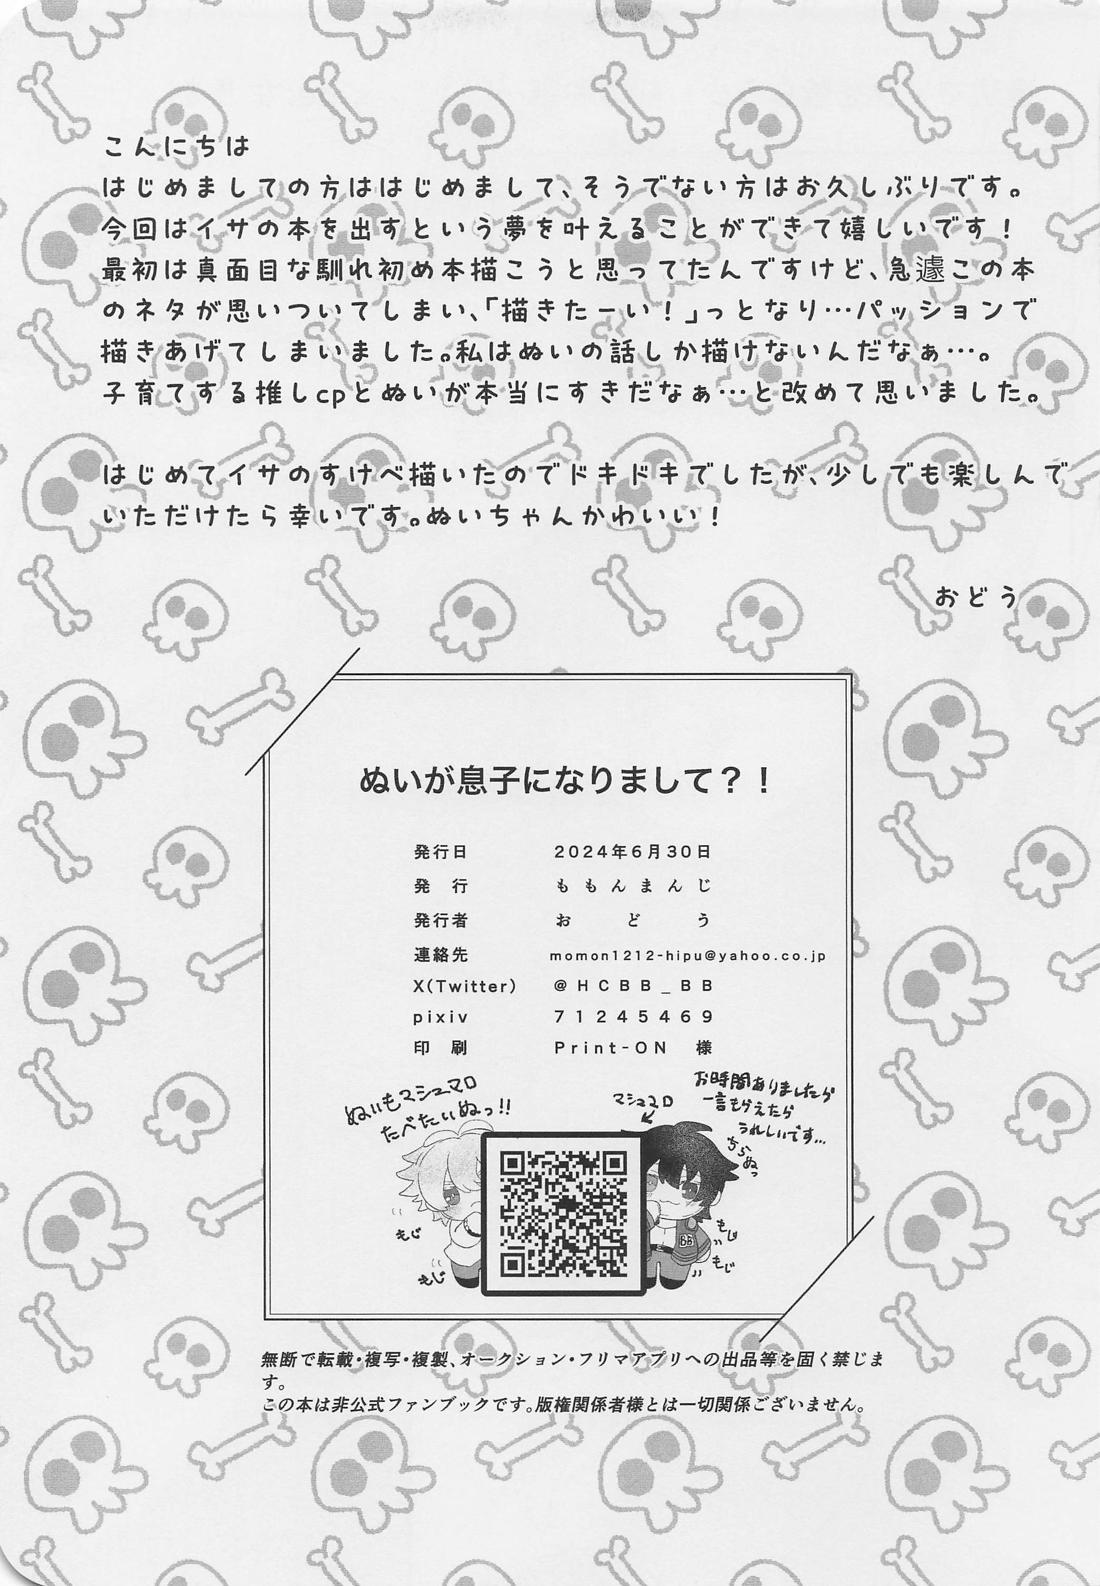 こんにちは
はじめましての方ははじめまして、そうでない方はお久しぶりです。
今回はイサの本を出すという夢を叶えることができて嬉しいです！
最初は真面目な馴れ初め本描こうと思ってたんですけど、急遽この本
のネタが思いついてしまい、「描きたーい！」っとなり…パッションで
描きあげてしまいました。私はぬいの話しか描けないんだなぁ…。
子育てする推しcpとぬいが本当にすきだなぁ…と改めて思いました。
はじめてイサのすけべ描いたのでドキドキでしたが、少しでも楽しんで
いただけたら幸いです。ぬいちゃんかわいい！
おどう
ぬいが息子になりまして？！
発行日 2024年6月30日
発　行 ももんまんじ
発行者 おどう
連絡先 momon1212-hipu@yahoo.co.jp
X(Twitter) @HCBB_BB
pixiv 71245469
印　刷 Print-ON 様
ぬいもマシュマロ
たべたいぬっ!!
マシュマロ
お時間ありましたら
一言もらえたら
うれしいです…
ちらぬっ
もじ
もじ
もじ
もじ
BB
無断で転載・複写・複製、オークション・フリマアプリへの出品等を固く禁じま
す。
この本は非公式ファンブックです。版権関係者様とは一切関係ございません。